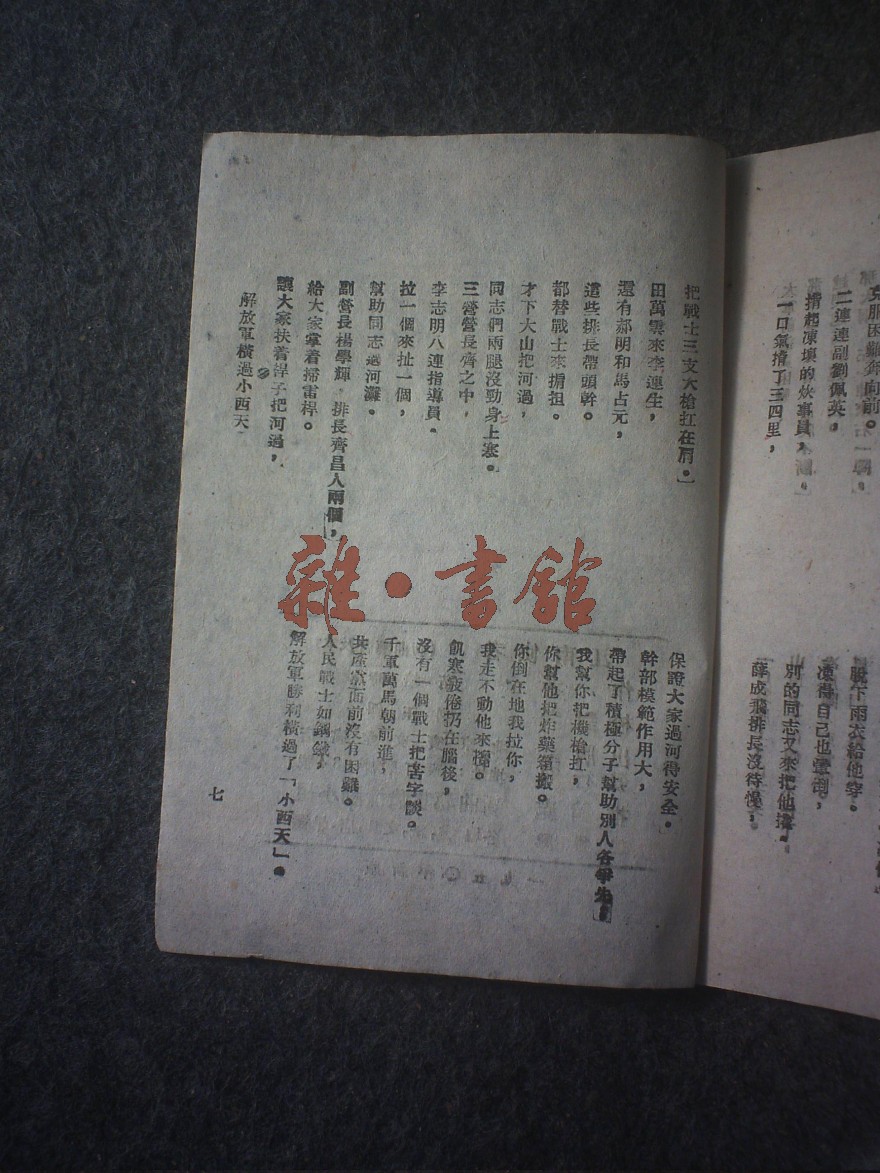 克服困難奔向前。
二連連副劉佩英，
揹起凍壞的炊事員，
一口氣揹了三四里，
脫下雨衣給他穿。
凍得自己也暈倒，
別的同志又來把他揹。
薛成飛排長沒待慢，
把戰士三支大槍扛在肩。
田萬雲來李連生，
還有郝明和馬占元，
這些排長帶頭幹。
都替戰士來揹担。
才下大山把河過，
同志們兩腿沒勁身上寒。
三營營長齊之中，
李志明八連指導員。
拉一個來扯一個，
幫助同志過河灘。
副營長楊學輝，排長齊昌人兩個，
給大家拿着掃雷桿。
讓大家扶着桿子把河過，
保證大家過河得安全。
幹部模範作用大，
帶起了積極分子幫助別人各爭先，
我幫你把機槍扛，
你幫他把炸藥箱搬。
你倒在地我拉你，
我走不動他來攙。
飢寒疲倦扔在腦後，
沒有一個戰士把苦字談。
千軍萬馬朝前進，
共產黨面前沒有困難。
人民戰士如鋼鐵，
解放軍勝利橫過了「小西天」。
解放軍橫過小西天
七
雜·書館